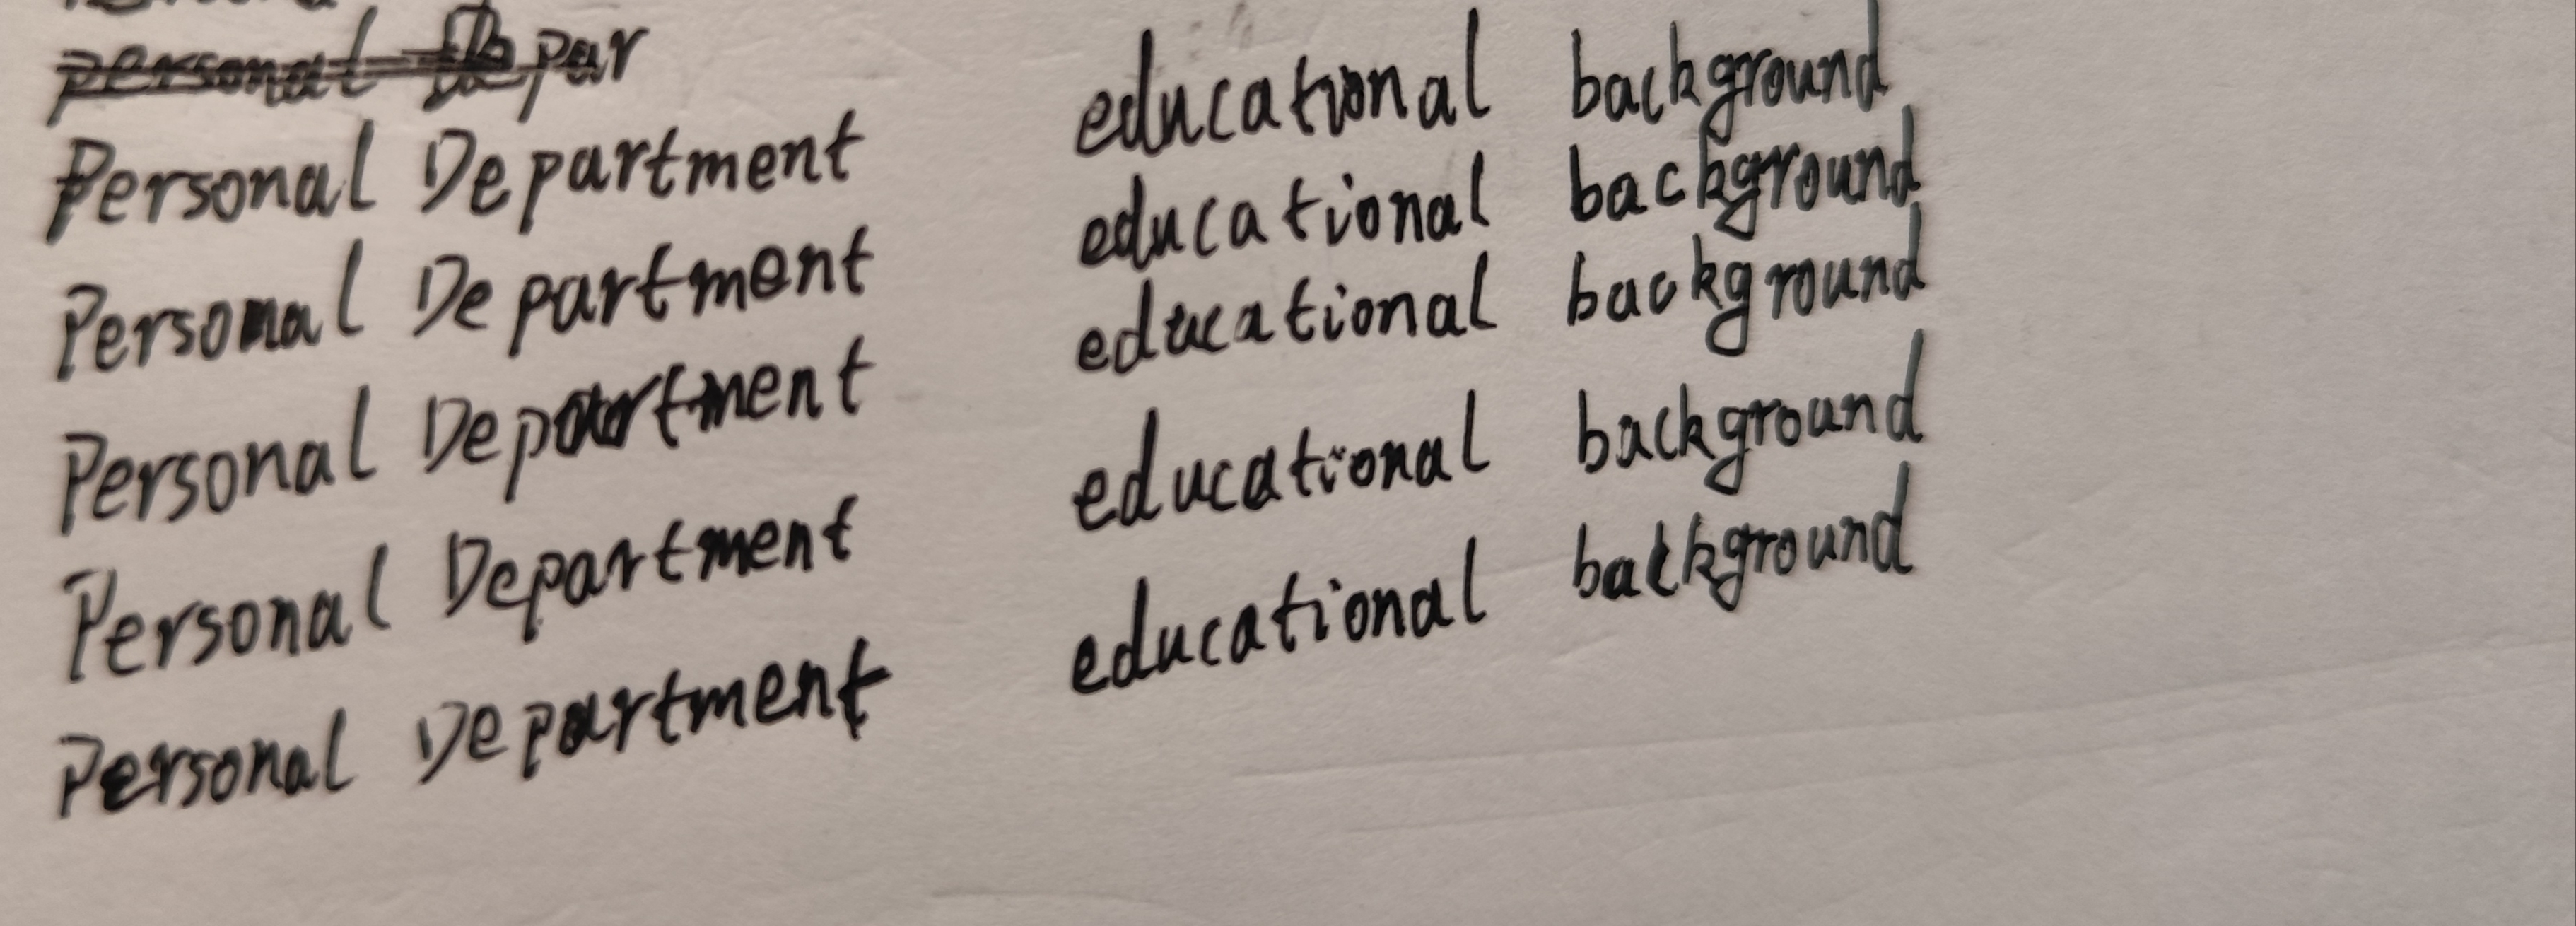 personal Depar
Personal Department
Personal Department
Personal Department
Personal Department
Personal Department
educational background
educational background
educational background
educational background
educational background